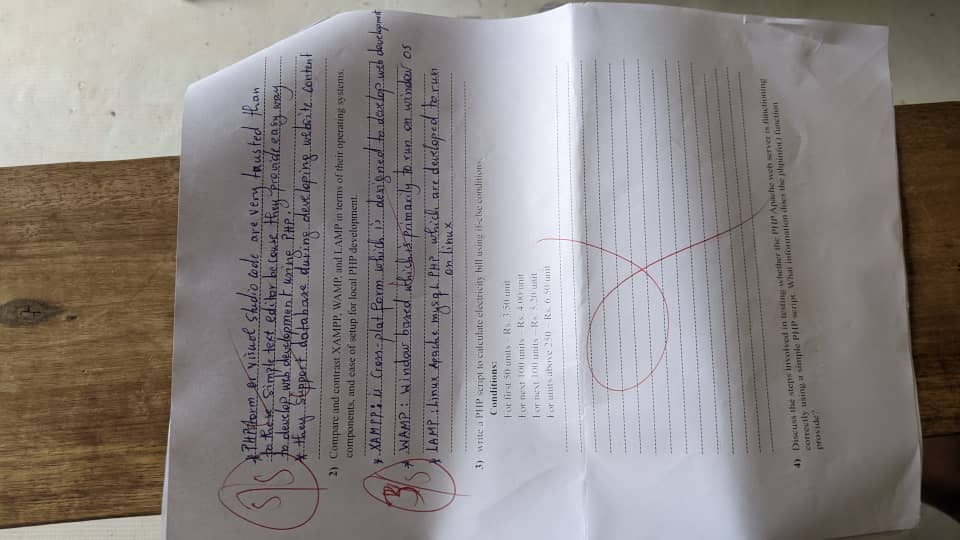 5/5
* PHPstorm or visual studio code are very trusted than
to these simple text editor because they provide easy way
to develop web development using PHP.
* they support database during developing website content
2) Compare and contrast XAMPP, WAMP, and LAMP in terms of their operating systems,
components, and ease of setup for local PHP development.
* XAMPP: is Cross-platform which is designed to develop web development
3/5
* WAMP: Window based which is primarily to run on window os
* LAMP: Linux Apache mysqL PHP which are developed to run
on linux
3) write a PHP script to calculate electricity bill using if-else conditions.
Conditions:
For first 50 units – Rs. 3.50/unit
For next 100 units – Rs. 4.00/unit
For next 100 units – Rs. 5.20/unit
For units above 250 – Rs. 6.50/unit
4) Discuss the steps involved in testing whether the PHP Apache web server is functioning
correctly using a simple PHP script. What information does the phpinfo() function
provide?